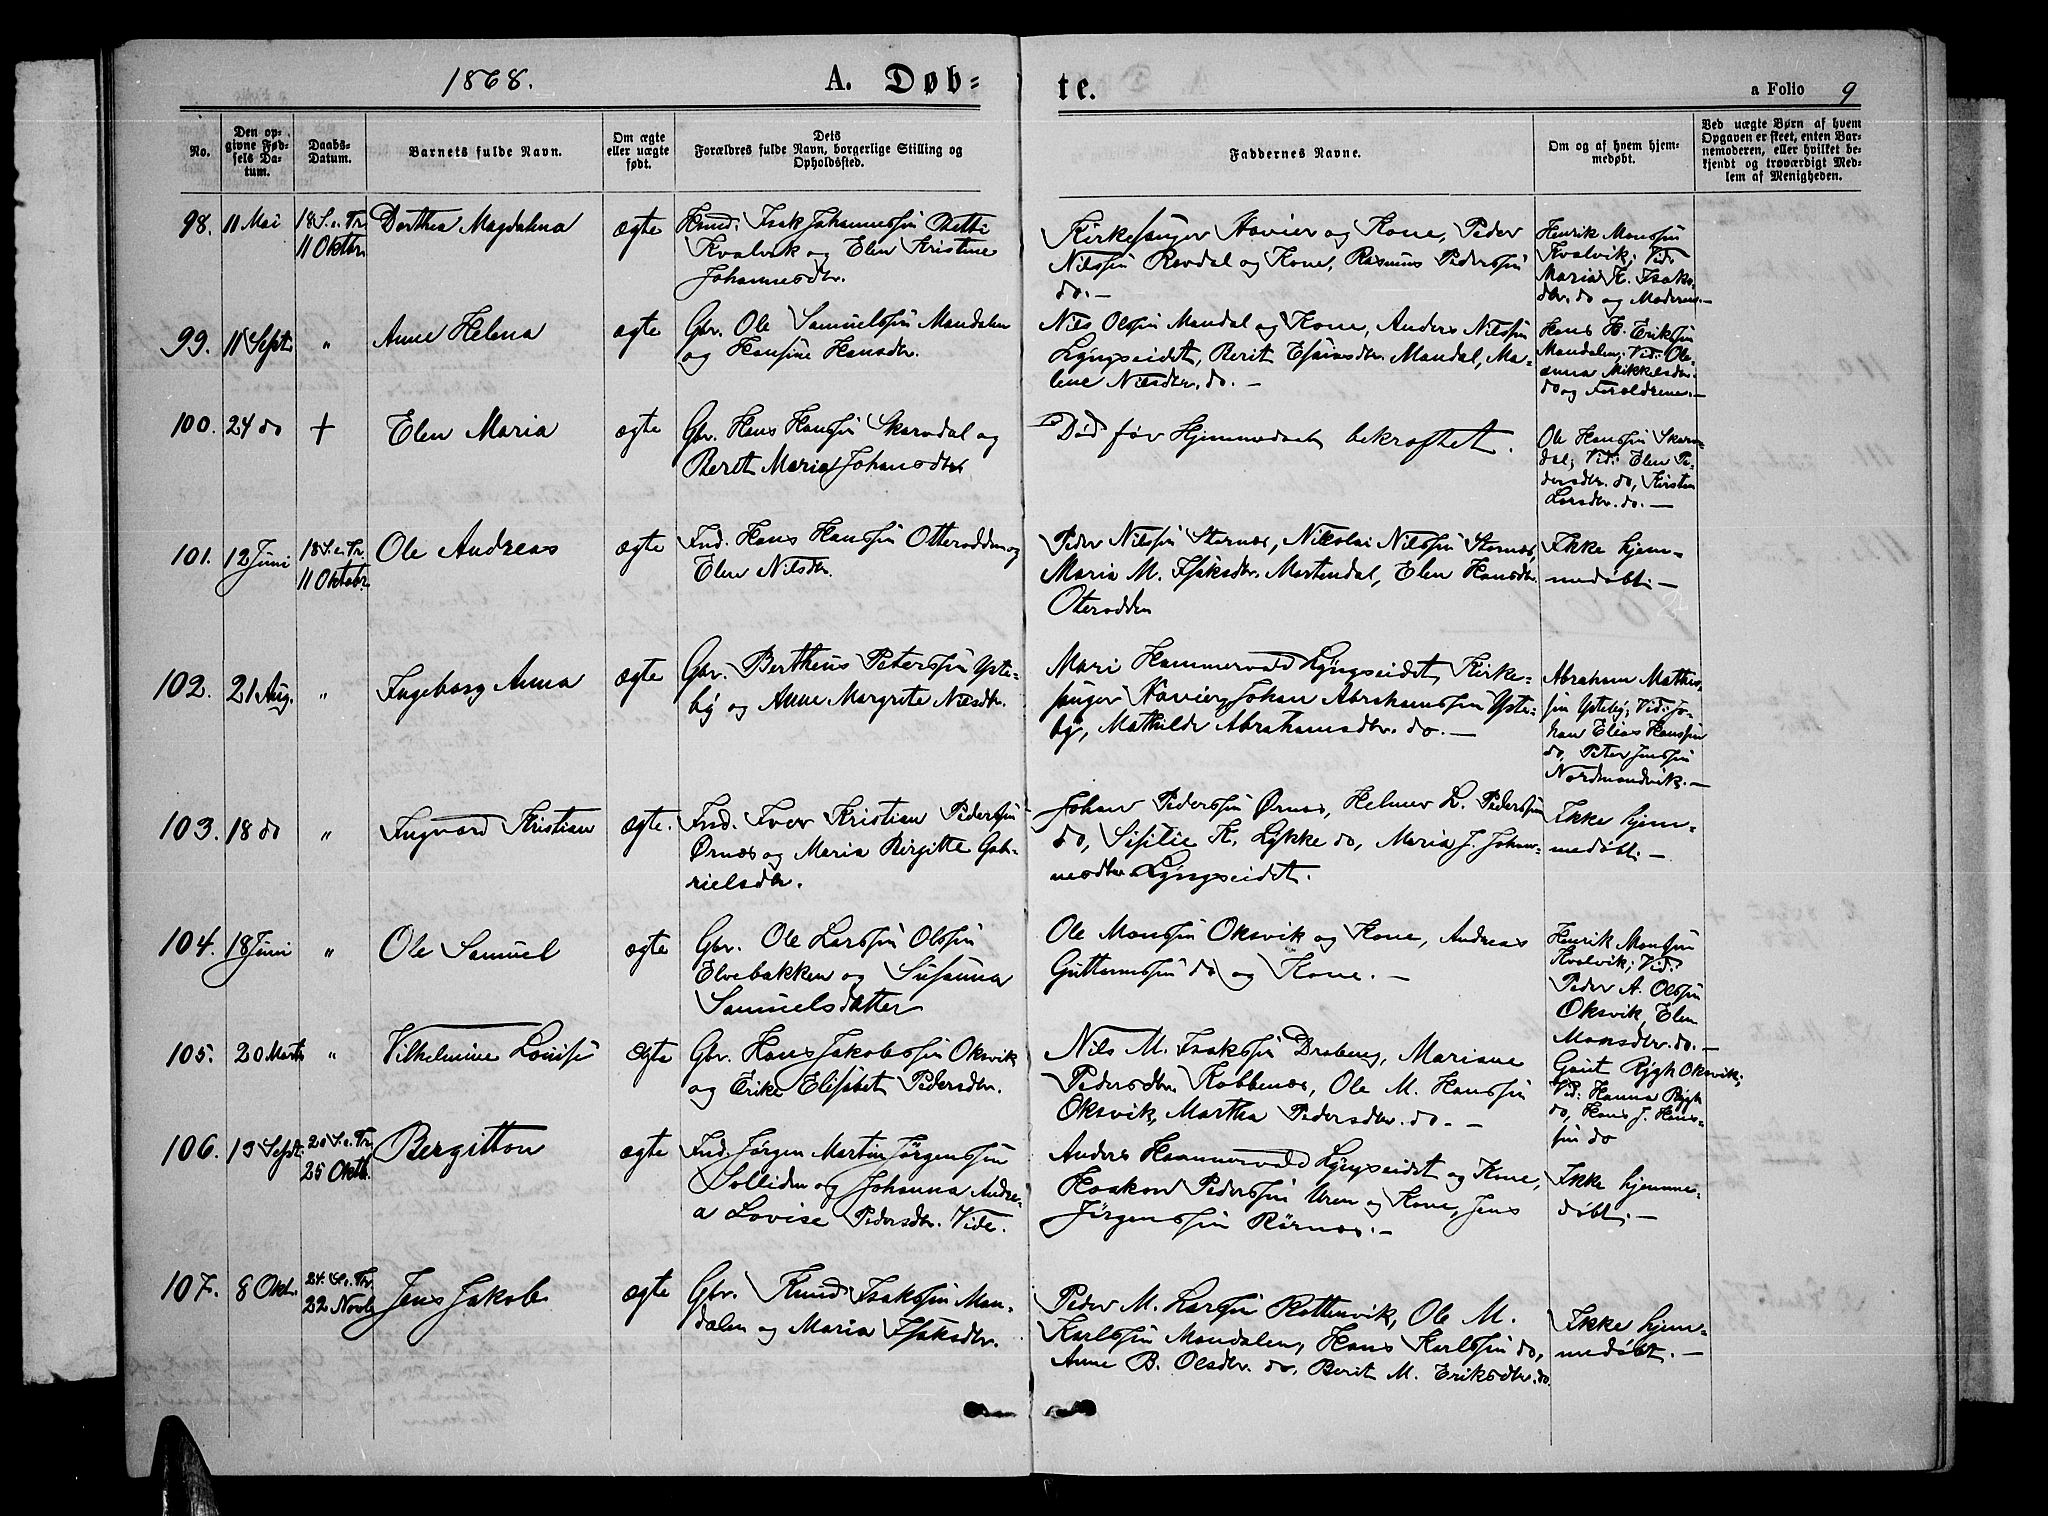 1868.
A. Døb=
te.
a Folio 9
No.
Den op-
givne Fød-
sels Da-
tum.
Daabs-
Datum.
Barnets fulde Navn.
Om ægte
eller uægte
født.
Dets
Forældres fulde Navn, borgerlige Stilling og
Opholdssted.
Faddernes Navne.
Om og af hvem hjem-
medøbt.
Ved uægte Børn af hvem
Opgaven er skeet, enten Bar-
nemoderen, eller hvilket be-
kjendt og troværdigt Med-
lem af Menigheden.
98.
11 Mai
18 S. e. Tr.
11 Oktbr
Dorthea Magdalena
ægte
Isak Johannessøn
Kvalvik og Elen Kristine
Johannesdtr.
Kirkesanger Xavier og Kone, Peder
Nilssøn Rovdal og Kone, Rasmus Pederssøn
do. –
Henrik Monssøn
Kvalvik; Vid:
Maria K. Isaks
dtr. do og Moderen. –
99.
11 Septr
"
Anne Helena
ægte
Gbr. Ole Samuelssøn Mandalen
og Hansine Hansdtr.
Nils Olssøn Mandal og Kone, Anders Nilssøn
Lyngseidet, Berit Esaiasdtr. Mandal, Ma-
lene Nilsdtr. do. –
Hans H. Erikssøn
Mandalen; Vid: Ole-
anna Mikkelsdtr.
do og Forældrene. –
100.
24 do
+
Elen Maria
ægte
Gbr. Hans Hanssøn Skarvdal og
Berit Maria Johansdtr
Død før Hjemmedaab bekræftet.
Ole Hanssøn Skarv-
dal; Vid: Elen Pe-
dersdtr. do, Kirsten
Larsdtr. do. –
101.
12 Juni
18 S. e. Tr.
11 Oktobr.
Ole Andreas
ægte
Ind. Hans Hanssøn Otterodden og
Elen Nilsdtr.
Peder Nilssøn Stornæs, Nikolai Nilssøn Stornæs,
Maria M. Isaksdtr. Mortendal, Elen Hansdtr.
Oterodden
Ikke hjem-
medøbt. –
102.
21 Aug.
"
Ingeborg Anna
ægte
Gbr. Bertheus Peterssøn Yste-
by og Anne Margrete Nilsdtr.
Mari Hammervold Lyngseidet, Kirke-
sanger Xavier, Johan Abrahamssøn Yste-
by, Mathilde Abrahamsdtr. do. –
Abraham Mathis-
søn Ysteby; Vid: Jo-
han Elias Hanssøn
do, Peter Jenssøn
Nordmandvik. –
103.
18 do
"
Ingvard Kristian
ægte.
Ind. Iver Kristian Pederssøn
Ørnæs og Maria Birgitte Gab-
rielsdtr.
Johan Pederssøn Ørnæs, Helmer L. Pederssøn
do, Sisilie K. Lykke do, Maria J. Johan-
nesdtr. Lyngseidet.
Ikke hjem-
medøbt. –
104.
18 Juni
"
Ole Samuel
ægte
Gbr. Ole Larssøn Olssøn
Elvebakken og Susanna
Samuelsdatter
Ole Monssøn Oksvik og Kone, Andreas
Guttormssøn do og Kone. –
Henrik Monssøn
Kvalvik; Vid:
Peder A. Olssøn
Oksvik, Elen
Monsdtr. do. –
105.
20 Marts
"
Vilhelmine Louise
ægte
Gbr. Hans Jakobssøn Oksvik
og Erike Elisabet Pedersdtr.
Nils M. Isakssøn Draberg, Mariane
Pedersdtr. Kobbenæs, Ole M. Hanssøn
Oksvik, Martha Pedersdtr. do. –
Gaut Rygh Oksvik;
Vid: Hanna Rygh
do, Hans J. Hans-
søn do
106.
19 Septr.
20 S. e. Tr.
25 Oktb.
Bergitton
ægte
Ind. Jørgen Martin Jørgenssøn
Solliden og Johanna Andre-
a Lovise Pedersdtr. Vide.
Anders Hammervold Lyngseidet og Kone,
Haakon Pederssøn Uren og Kone, Jens
Jørgenssøn Rørnæs. –
Ikke hjemme-
døbt. –
107.
8 Oktr.
24. S. e. Tr.
22 Novb
Jens Jakob
ægte
Gbr. Knud Isakssøn Man-
dalen og Maria Isaksdtr.
Peder M. Larssøn Rottenvik, Ole M.
Karlssøn Mandalen, Hans Karlssøn do,
Anne B. Olsdtr. do, Berit M. Eriksdtr. do.
Ikke hjem-
medøbt. –